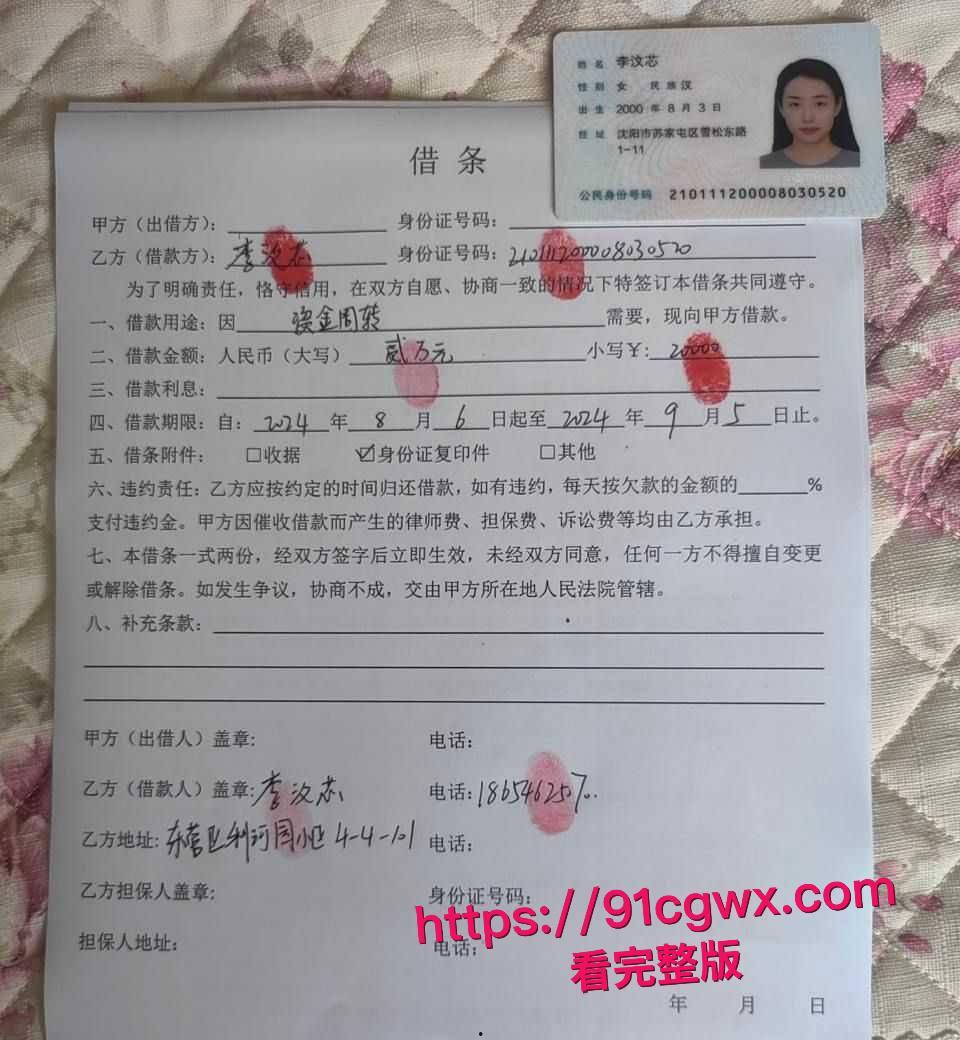 姓名 [略]
性别 女 民族 汉
出生 [略]
住址 [略]
公民身份号码 [略]
借条
甲方（出借方）： 身份证号码：
乙方（借款方）：[略] 身份证号码：[略]
为了明确责任，恪守信用，在双方自愿、协商一致的情况下特签订本借条共同遵守。
一、借款用途：因 资金周转 需要，现向甲方借款。
二、借款金额：人民币（大写） 贰万元 小写￥：20000
三、借款利息：
四、借款期限：自：2024年8月6日起至2024年9月5日止。
五、借条附件： □收据 ☑身份证复印件 □其他
六、违约责任：乙方应按约定的时间归还借款，如有违约，每天按欠款的金额的______%
支付违约金。甲方因催收借款而产生的律师费、担保费、诉讼费等均由乙方承担。
七、本借条一式两份，经双方签字后立即生效，未经双方同意，任何一方不得擅自变更
或解除借条。如发生争议，协商不成，交由甲方所在地人民法院管辖。
八、补充条款：
甲方（出借人）盖章: 电话：
乙方（借款人）盖章:[略] 电话:[略]
乙方地址:[略] 电话：
乙方担保人盖章： 身份证号码：
担保人地址： 电话：
[略]
看完整版
年 月 日